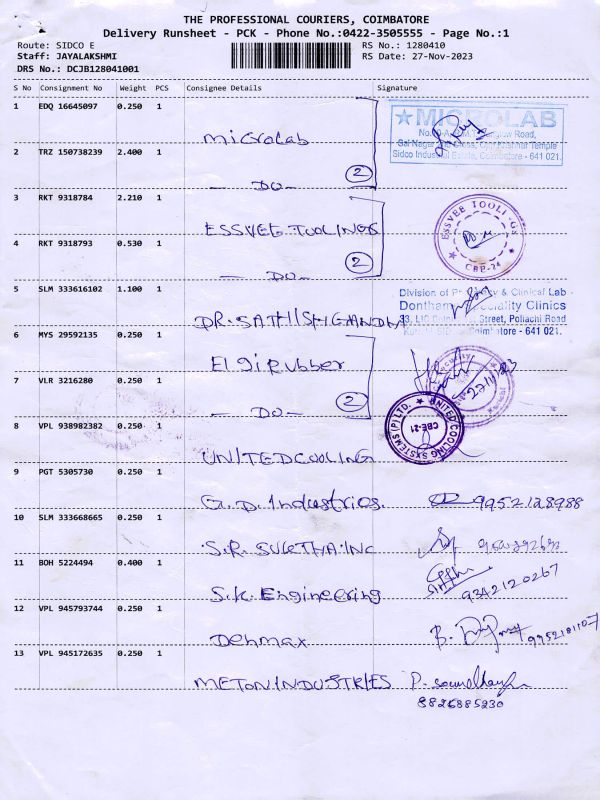 THE PROFESSIONAL COURIERS, COIMBATORE
Delivery Runsheet - PCK - Phone No.:0422-3505555 - Page No.:1
Route: SIDCO E RS No.: 1280410
Staff: JAYALAKSHMI RS Date: 27-Nov-2023
DRS No.: DCJB128041001
S No Consignment No Weight PCS Consignee Details Signature
1 EDQ 16645097 0.250 1
microlab
MICROLAB
Sidco Industrial Estate, Coimbatore - 641 021.
2 TRZ 150738239 2.400 1
— DO — 2
3 RKT 9318784 2.210 1
ESSVEE TOOLINGS
ESSVEE TOOLINGS
4 RKT 9318793 0.530 1
— DO — 2
5 SLM 333616102 1.100 1
Division of & Clinical Lab
Clinics
Street, Pollachi Road
Coimbatore - 641 021.
6 MYS 29592135 0.250 1
Elgi Rubber
7 VLR 3216280 0.250 1
— DO — 2
8 VPL 938982382 0.250 1
UNITED COOLING
UNITED COOLING SYSTEMS (P) LTD.
CBE-21
9 PGT 5305730 0.250 1
G.D. Industries. 9952128988
10 SLM 333668665 0.250 1
S.R. SUKETHA.INC
11 BOH 5224494 0.400 1
S.K. Engineering 9342120267
12 VPL 945793744 0.250 1
Denmax B.
13 VPL 945172635 0.250 1
METON INDUSTRIES P.